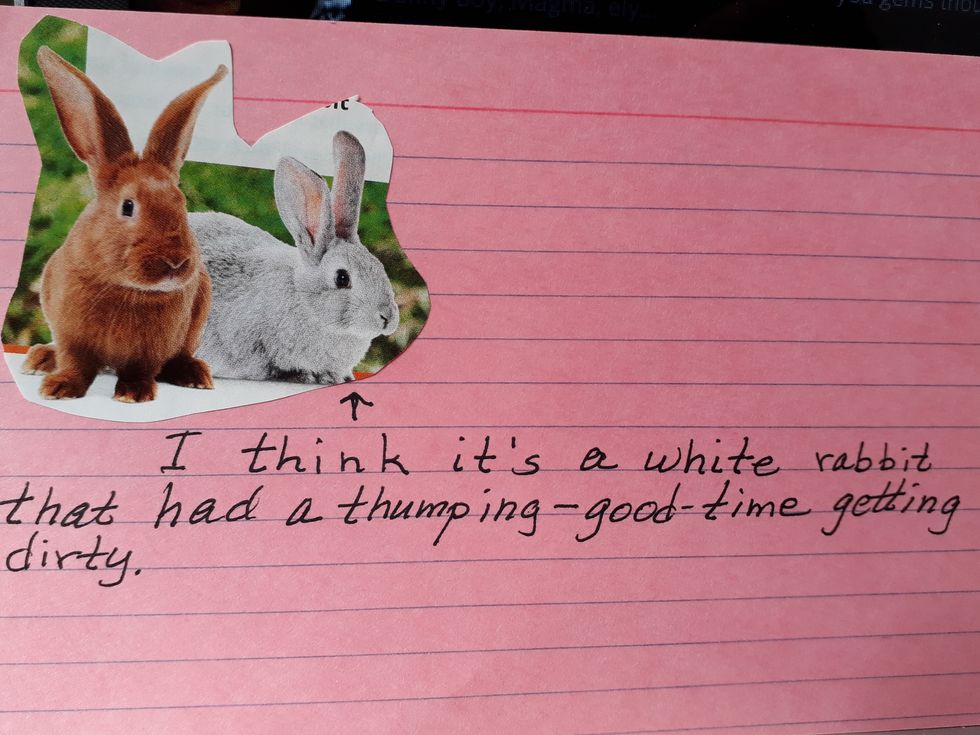 I think it's a white rabbit
that had a thumping-good-time getting
dirty.